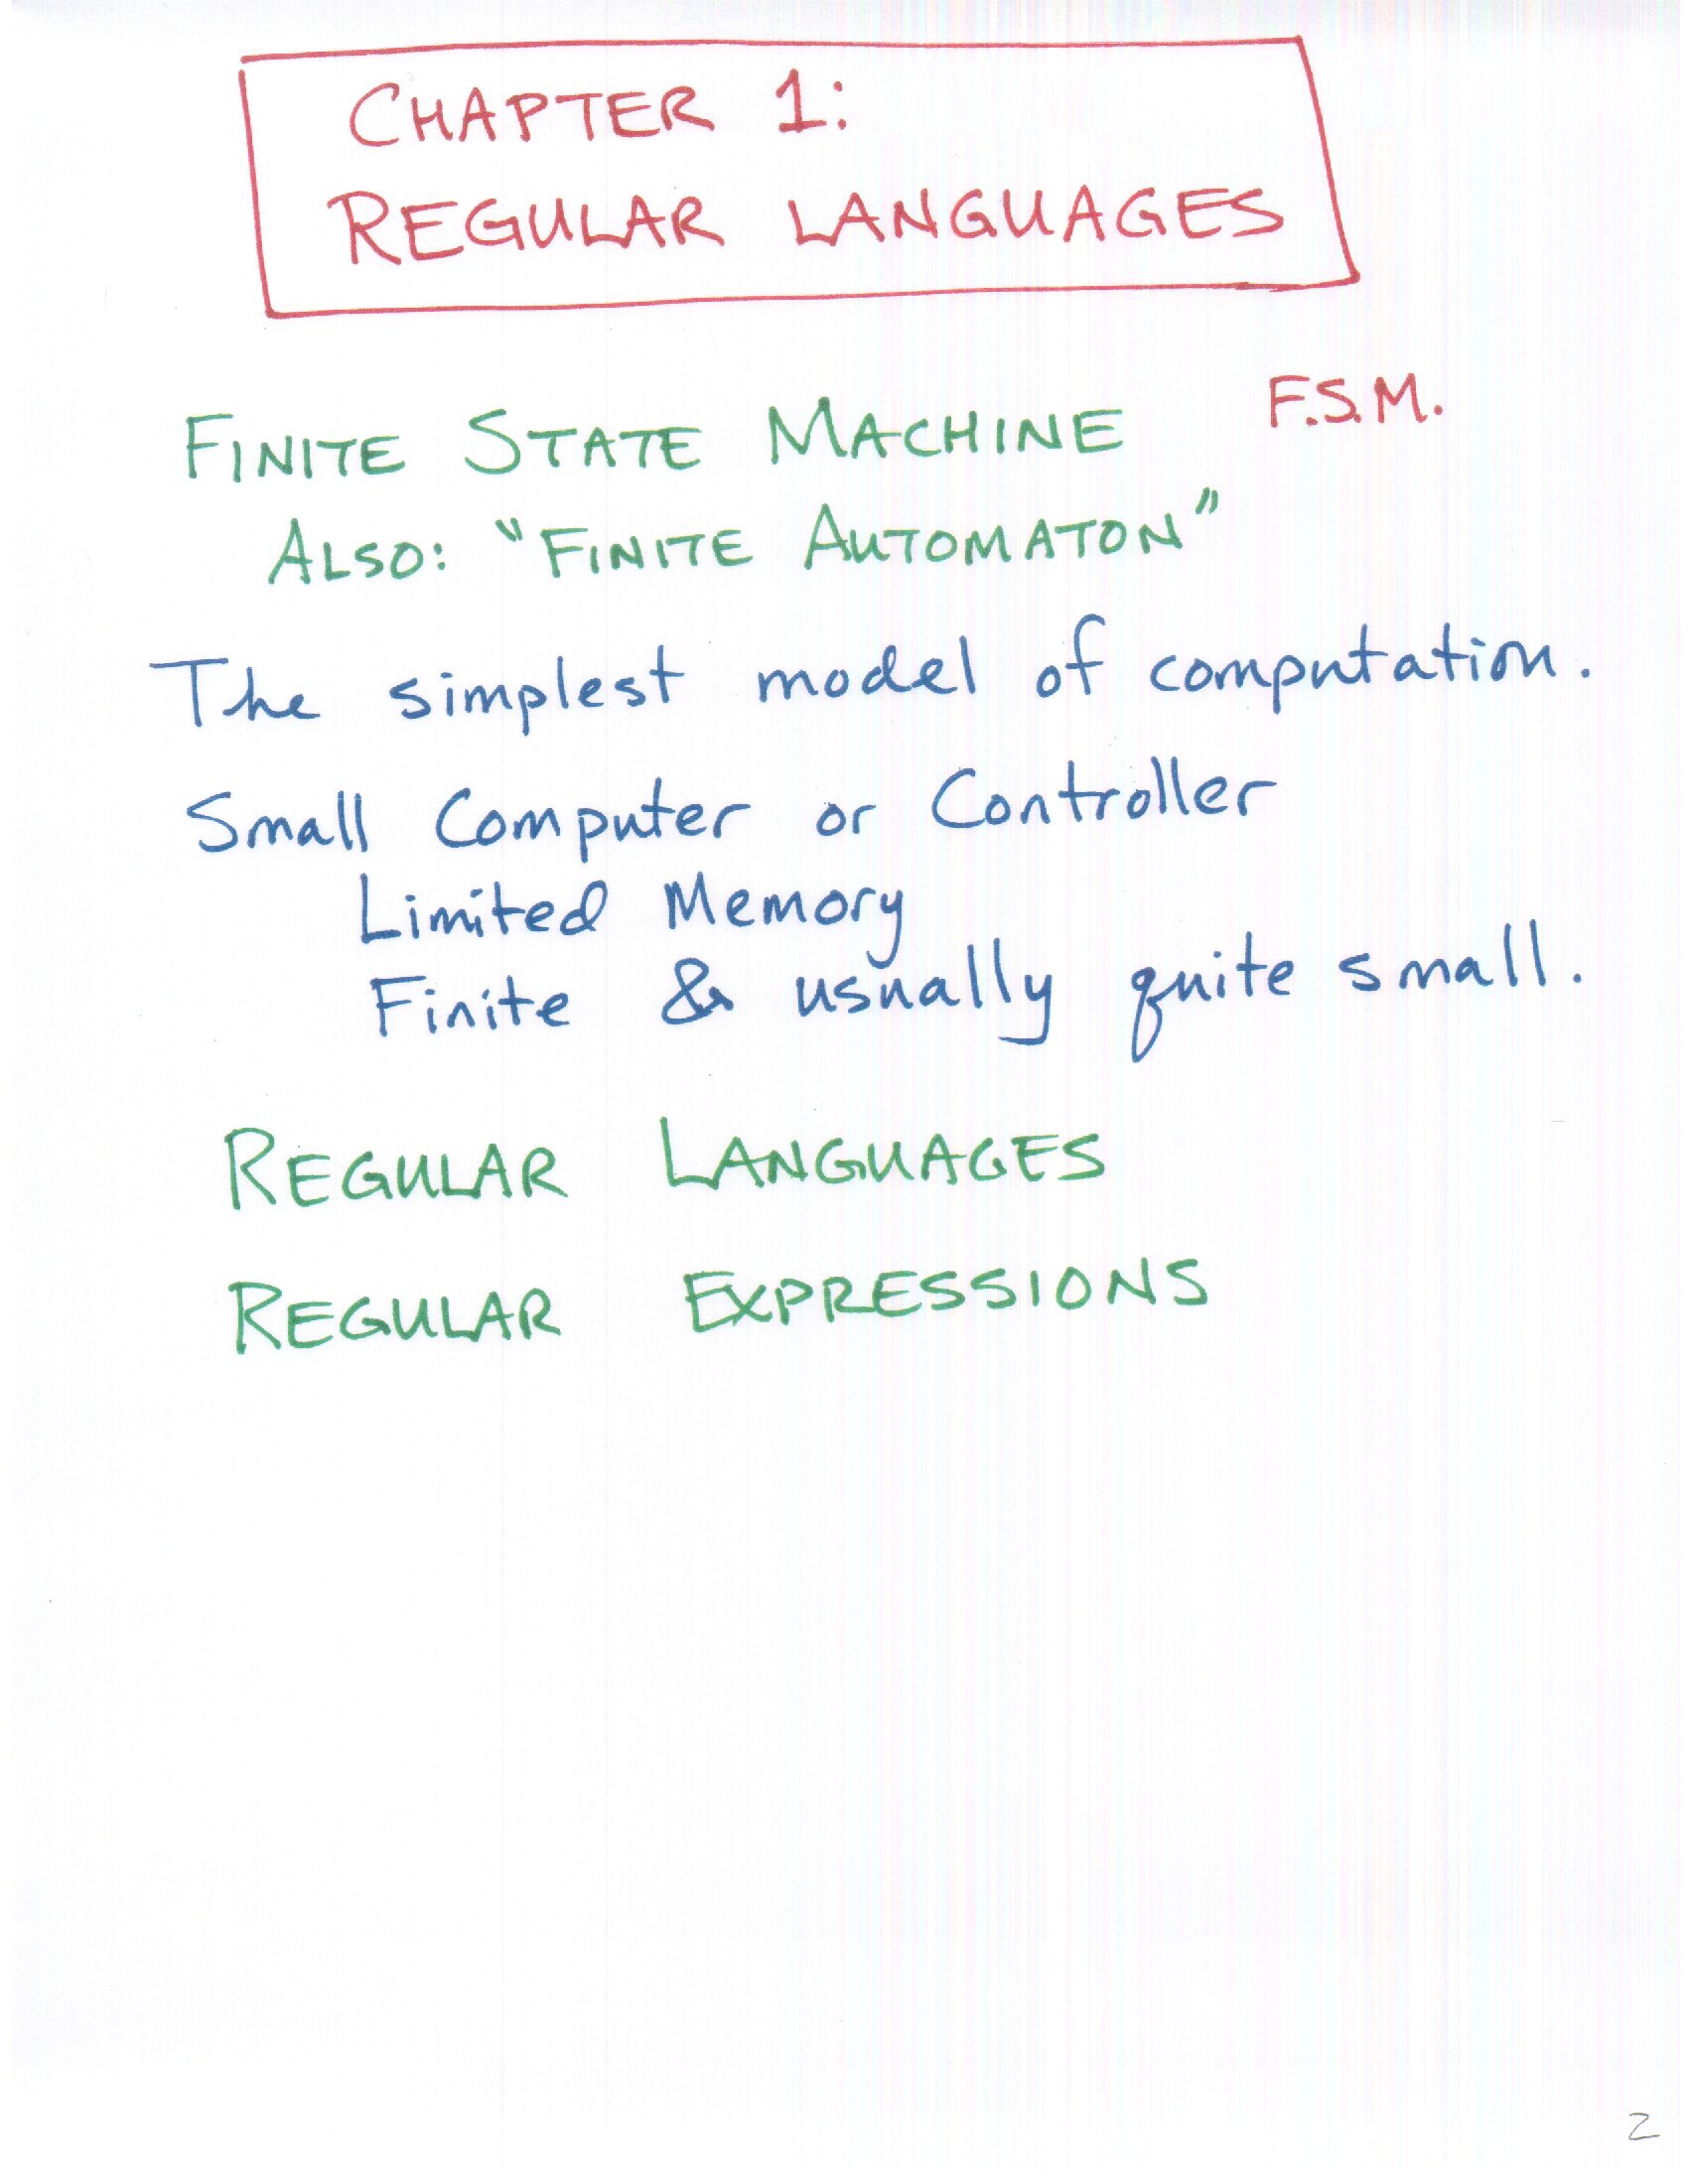 CHAPTER 1:
REGULAR LANGUAGES
FINITE STATE MACHINE F.S.M.
ALSO: "FINITE AUTOMATON"
The simplest model of computation.
Small Computer or Controller
Limited Memory
Finite & usually quite small.
REGULAR LANGUAGES
REGULAR EXPRESSIONS
2